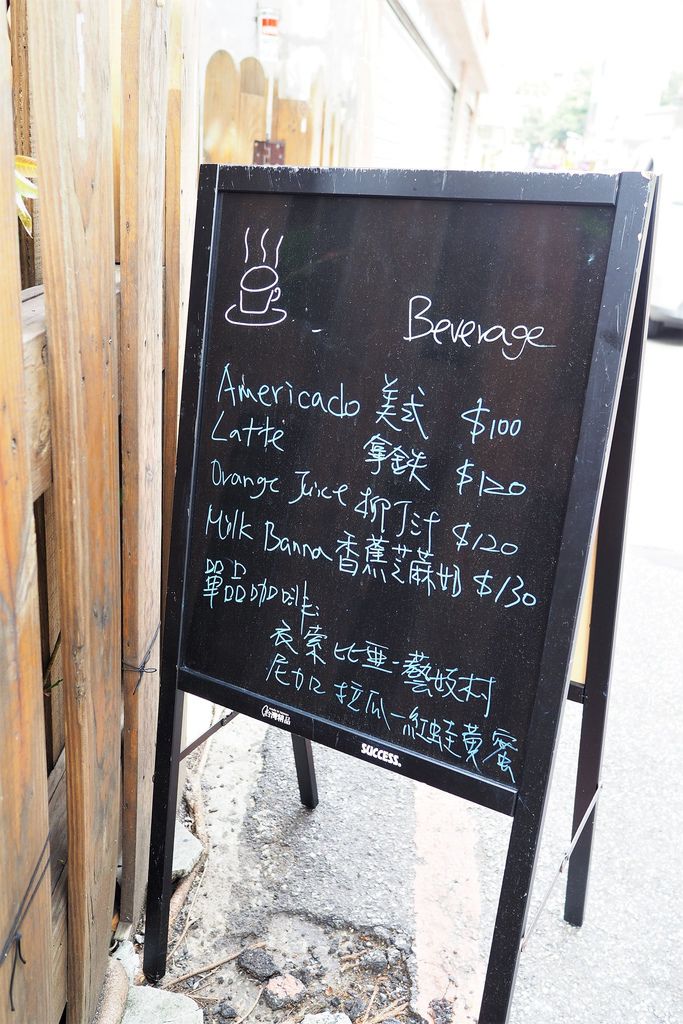 Beverage
Americado 美式 $100
Latte 拿鉄 $120
Orange Juice 柳丁汁 $120
Milk Banna 香蕉芝麻奶 $130
單品咖啡:
衣索比亞-藝妓村
尼加拉瓜-紅蜂黃蜜
SUCCESS.